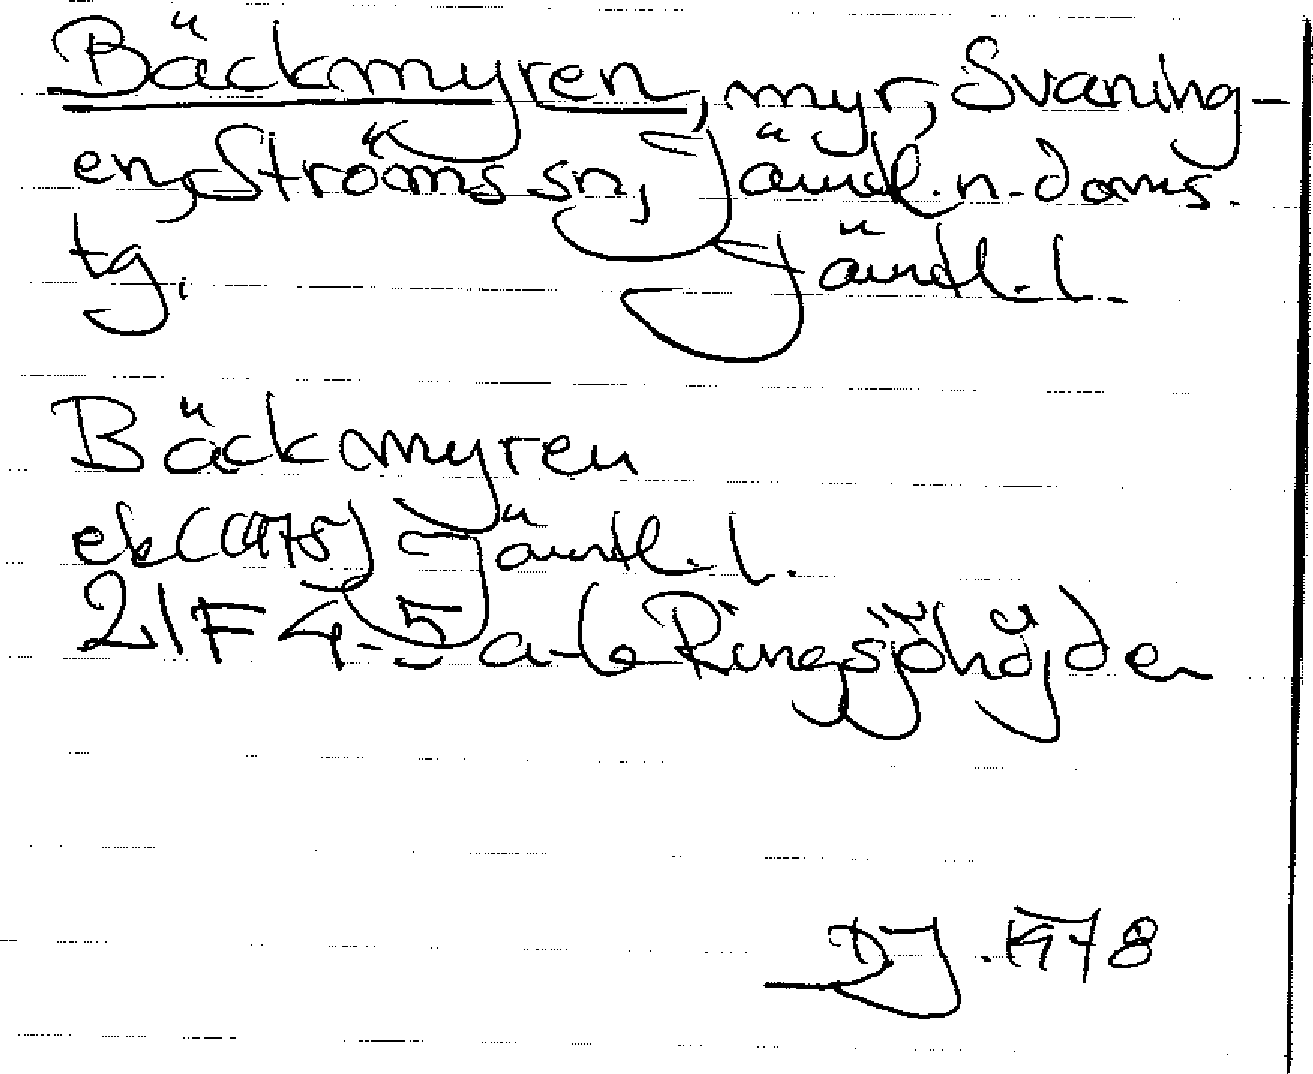 Bäckmyren, myr, Svaning-
en, Ströms sn, Jämtl. n. doms.
tg. Jämtl. l.
Bäckmyren
ek (1975) Jämtl. l.
21F 4-5 a-b Ringsjöhöjden
DJ. 1978